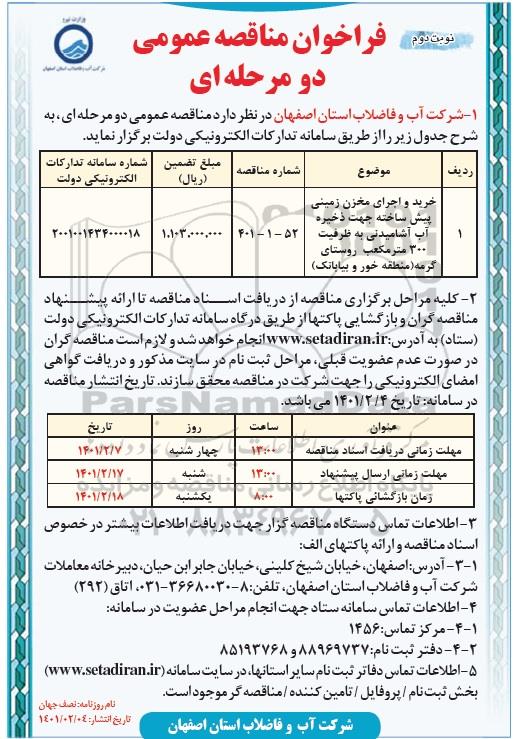 وزارت نیرو
شرکت آب و فاضلاب استان اصفهان
نوبت دوم
فراخوان مناقصه عمومی
دو مرحله‌ای
۱-شرکت آب و فاضلاب استان اصفهان در نظر دارد مناقصه عمومی دو مرحله‌ای، به
شرح جدول زیر را از طریق سامانه تدارکات الکترونیکی دولت برگزار نماید.
ردیف | موضوع | شماره مناقصه | مبلغ تضمین (ریال) | شماره سامانه تدارکات الکترونیکی دولت
۱ | خرید و اجرای مخزن زمینی پیش ساخته جهت ذخیره آب آشامیدنی به ظرفیت ۳۰۰ مترمکعب روستای گرمه(منطقه خور و بیابانک) | ۵۲ - ۱ - ۴۰۱ | ۱,۱۰۳,۰۰۰,۰۰۰ | ۲۰۰۱۰۰۱۴۳۴۰۰۰۰۱۸
۲- کلیه مراحل برگزاری مناقصه از دریافت اسناد مناقصه تا ارائه پیشنهاد
مناقصه گران و بازگشایی پاکتها از طریق درگاه سامانه تدارکات الکترونیکی دولت
(ستاد) به آدرس:www.setadiran.ir انجام خواهد شد و لازم است مناقصه گران
در صورت عدم عضویت قبلی، مراحل ثبت نام در سایت مذکور و دریافت گواهی
امضای الکترونیکی را جهت شرکت در مناقصه محقق سازند. تاریخ انتشار مناقصه
در سامانه: تاریخ ۱۴۰۱/۲/۴ می باشد.
عنوان | ساعت | روز | تاریخ
مهلت زمانی دریافت اسناد مناقصه | ۱۳:۰۰ | چهار شنبه | ۱۴۰۱/۲/۷
مهلت زمانی ارسال پیشنهاد | ۱۳:۰۰ | شنبه | ۱۴۰۱/۲/۱۷
زمان بازگشائی پاکتها | ۸:۰۰ | یکشنبه | ۱۴۰۱/۲/۱۸
۳-اطلاعات تماس دستگاه مناقصه گزار جهت دریافت اطلاعات بیشتر در خصوص
اسناد مناقصه و ارائه پاکتهای الف:
۳-۱- آدرس:اصفهان، خیابان شیخ کلینی، خیابان جابر ابن حیان، دبیرخانه معاملات
شرکت آب و فاضلاب استان اصفهان، تلفن: ۸-۳۶۶۸۰۰۳۰-۰۳۱، اتاق (۲۹۲)
۴-اطلاعات تماس سامانه ستاد جهت انجام مراحل عضویت در سامانه:
۴-۱- مرکز تماس: ۱۴۵۶
۴-۲- دفتر ثبت نام: ۸۸۹۶۹۷۳۷ و ۸۵۱۹۳۷۶۸
۵-اطلاعات تماس دفاتر ثبت نام سایر استانها، در سایت سامانه (www.setadiran.ir)
بخش ثبت نام / پروفایل / تامین کننده / مناقصه گر موجود است.
شرکت آب و فاضلاب استان اصفهان
نام روزنامه: نصف جهان
تاریخ انتشار: ۱۴۰۱/۰۲/۰۴